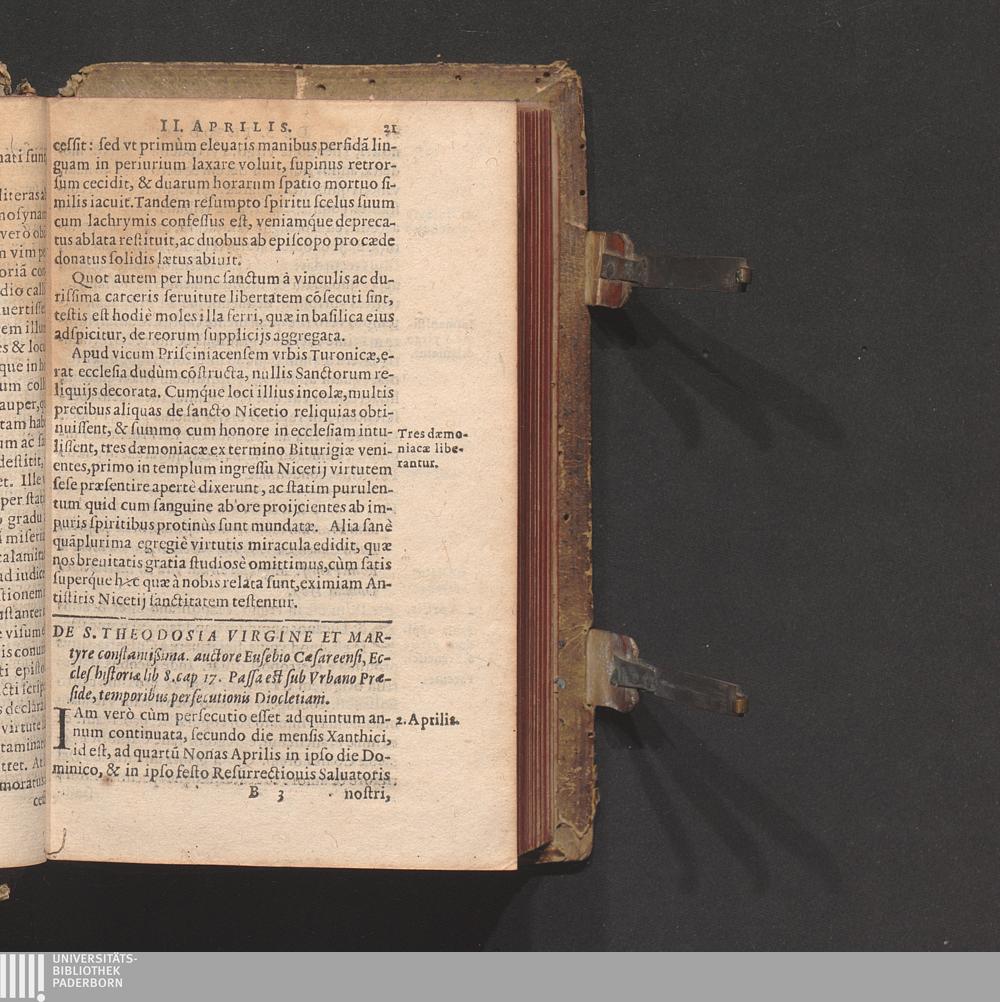 II. APRILIS. 21
cessit: sed vt primùm eleuatis manibus perfidā lin-
guam in periurium laxare voluit, supinus retror-
sum cecidit, & duarum horarum spatio mortuo si-
milis iacuit. Tandem resumpto spiritu scelus suum
cum lachrymis confessus est, veniamq́ue depreca-
tus ablata restituit, ac duobus ab episcopo pro cæde
donatus solidis lætus abiuit.
Quot autem per hunc sanctum à vinculis ac du-
rissima carceris seruitute libertatem cōsecuti sint,
testis est hodiè moles illa ferri, quæ in basilica eius
adspicitur, de reorum supplicijs aggregata.
Apud vicum Prisciniacensem vrbis Turonicæ, e-
rat ecclesia dudùm cōstructa, nullis Sanctorum re-
liquijs decorata. Cumq́ue loci illius incolæ, multis
precibus aliquas de sancto Nicetio reliquias obti-
nuissent, & summo cum honore in ecclesiam intu-
lissent, tres dæmoniacæ ex termino Biturigiæ veni-
entes, primo in templum ingressu Nicetij virtutem
sese præsentire apertè dixerunt, ac statim purulen-
tum quid cum sanguine ab ore proijcientes ab im-
puris spiritibus protinùs sunt mundatæ. Alia sanè
quāplurima egregiè virtutis miracula edidit, quæ
nos breuitatis gratia studiosè omittimus, cùm satis
superque hæc quæ à nobis relata sunt, eximiam An-
tistitis Nicetij sanctitatem testentur.
Tres dæmo-
niacæ libe-
rantur.
DE S. THEODOSIA VIRGINE ET MAR-
tyre constantissima. auctore Eusebio Cæsareensi, Ec-
cles historiæ lib 8. cap 17. Passa est sub Vrbano Præ-
side, temporibus persecutionis Diocletiani.
IAm verò cùm persecutio esset ad quintum an-
num continuata, secundo die mensis Xanthici,
id est, ad quartū Nonas Aprilis in ipso die Do-
minico, & in ipso festo Resurrectionis Saluatoris
2. Aprilis.
B 3 nostri,
UNIVERSITÄTS-
BIBLIOTHEK
PADERBORN